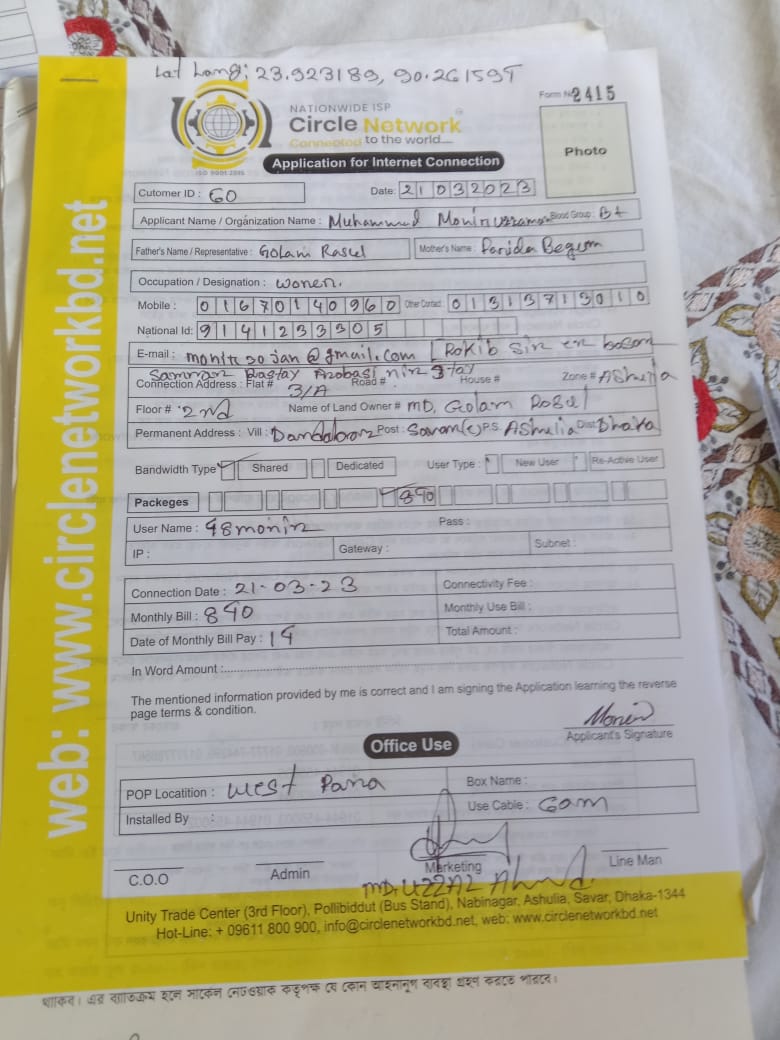 Lat Long: 23.923189, 90.261595
NATIONWIDE ISP
Circle Network
Connected to the world...
ISO 9001:2015
Form No 2415
Photo
Application for Internet Connection
Cutomer ID : 60 Date: 21032023
Applicant Name / Organization Name : Muhammed Moniruzzaman Blood Group : B+
Father's Name / Representative : Golam Rasul Mother's Name : Parida Begum
Occupation / Designation :
Mobile : 01670140960 Other Contact : 01313713010
National Id: 9141233305
E-mail : @gmail.com [Rokib Sir er
Connection Address : Flat # 3/A Road # House # Zone # Ashulia
Floor # 2nd Name of Land Owner # MD, Golam Rosul
Permanent Address : Vill : Post : Savar P.S. Ashulia Dist: Dhaka
Bandwidth Type Shared Dedicated User Type : New User Re-Active User
Packeges 890
User Name : 98monir Pass :
IP : Gateway : Subnet :
Connection Date : 21-03-23 Connectivity Fee :
Monthly Bill : 890 Monthly Use Bill :
Date of Monthly Bill Pay : 19 Total Amount :
In Word Amount :
The mentioned information provided by me is correct and I am signing the Application learning the reverse
page terms & condition.
Monir
Applicant's Signature
Office Use
POP Locatition : West Para Box Name :
Installed By : Use Cable :
C.O.O Admin Marketing Line Man
MD. UZZAL Ahmed.
Unity Trade Center (3rd Floor), Pollibiddut (Bus Stand), Nabinagar, Ashulia, Savar, Dhaka-1344
Hot-Line: + 09611 800 900, info@circlenetworkbd.net, web: www.circlenetworkbd.net
web: www.circlenetworkbd.net
থাকিব। এর ব্যতিক্রম হলে সার্কেল নেটওয়ার্ক কর্তৃপক্ষ যে কোন আইনানুগ ব্যবস্থা গ্রহণ করতে পারবে।